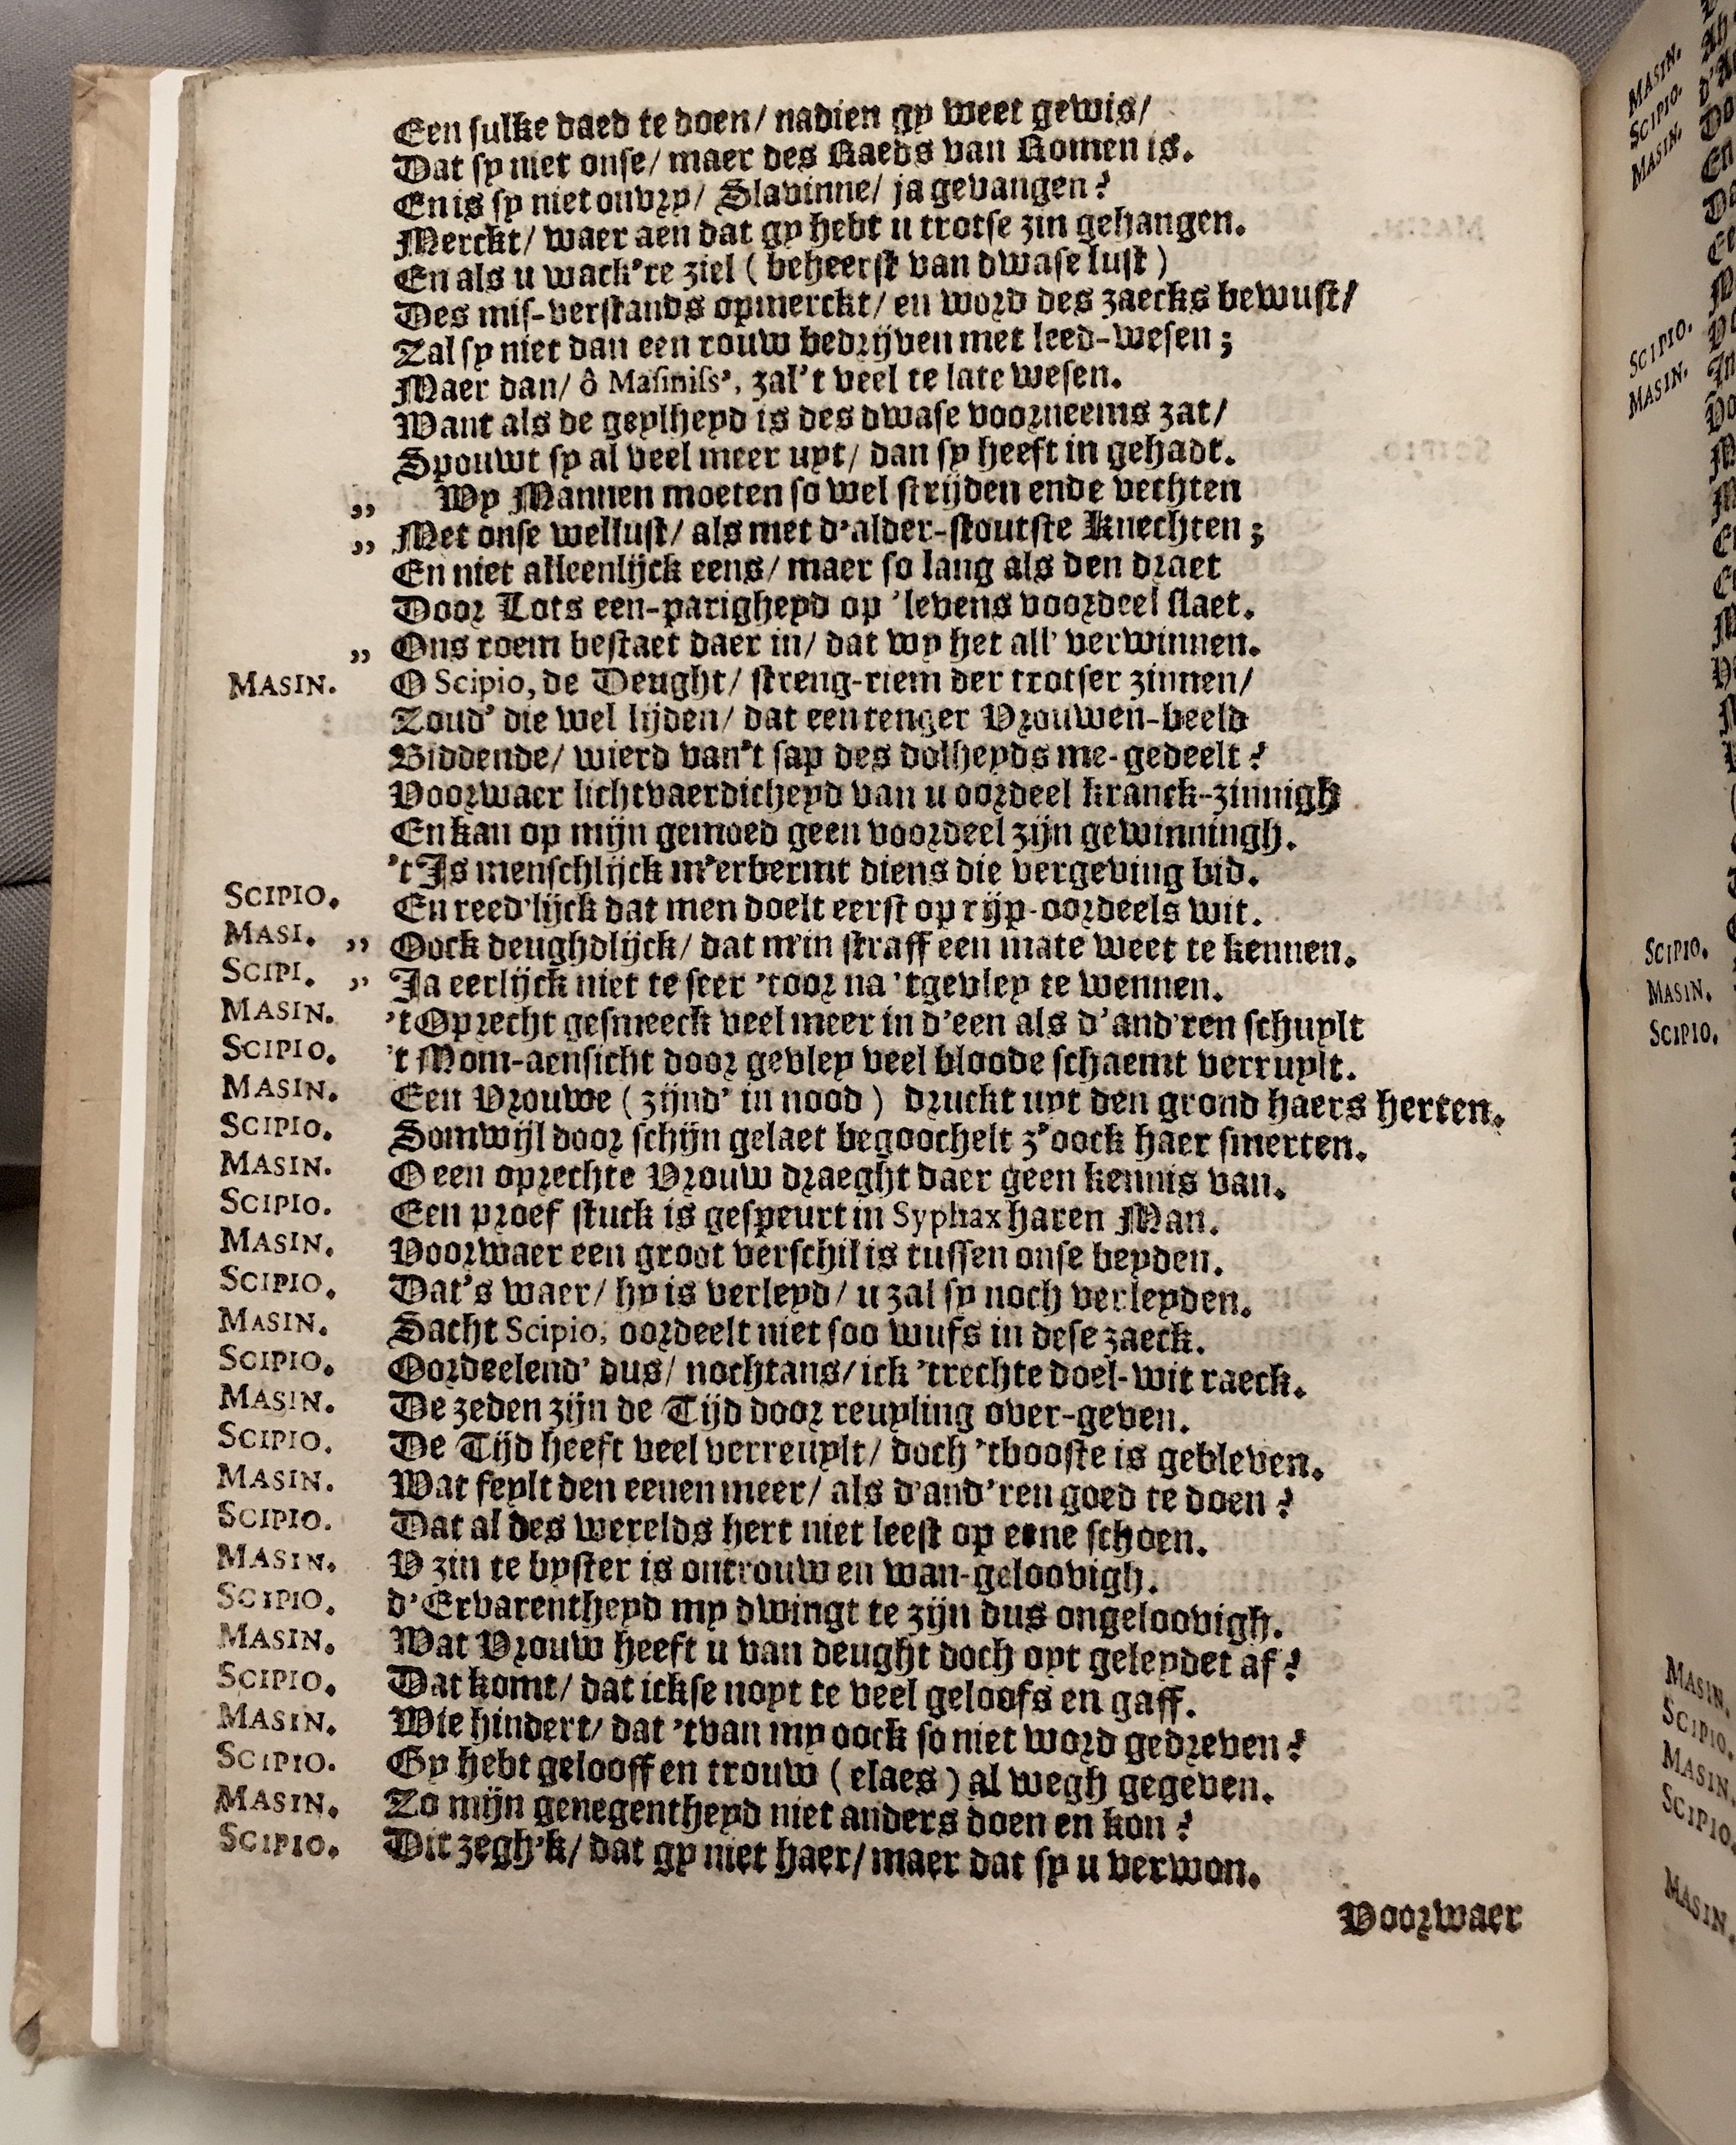 Een sulke daed te doen/ nadien gy weet gewis/
Dat sy niet onse/ maer des Raeds van Romen is.
En is sy niet onvry/ Slavinne/ ja gevangen?
Merckt/ waer aen dat gy hebt u trotse zin gehangen.
En als u wack're ziel ( beheerst van dwase lust )
Des mis-verstands opmerckt/ en word des zaecks bewust/
Zal sy niet dan een rouw bedrijven met leed-wesen;
Maer dan/ ô Masiniss', zal't veel te late wesen.
Want als de geylheyd is des dwase voorneems zat/
Spouwt sy al veel meer uyt/ dan sy heeft in gehadt.
„ Wy Mannen moeten so wel strijden ende vechten
„ Met onse wellust/ als met d'alder-stoutste Knechten;
En niet alleenlijck eens/ maer so lang als den draet
Door Lots een-parigheyd op 'levens voordeel slaet.
„ Ons roem bestaet daer in/ dat wy het all' verwinnen.
MASIN. O Scipio, de Deught/ streng-riem der trotser zinnen/
Zoud' die wel lijden/ dat een tenger Vrouwen-beeld
Biddende/ wierd van't sap des dolheyds me-gedeelt?
Voorwaer lichtvaerdicheyd van u oordeel kranck-zinnigh
En kan op mijn gemoed geen voordeel zijn gewinningh.
't Is menschlijck m'erbermt diens die vergeving bid.
SCIPIO. En reed'lijck dat men doelt eerst op rijp-oordeels wit.
MASI. „ Oock deughdlijck/ dat m'in straff een mate weet te kennen.
SCIPI. „ Ja eerlijck niet te seer 'toor na 'tgevley te wennen.
MASIN. 't Oprecht gesmeeck veel meer in d'een als d'and'ren schuylt
SCIPIO. 't Mom-aensicht door gevley veel bloode schaemt verruylt.
MASIN. Een Vrouwe ( zijnd' in nood ) druckt uyt den grond haers herten.
SCIPIO. Somwijl door schijn gelaet begoochelt z'oock haer smerten.
MASIN. O een oprechte Vrouw draeght daer geen kennis van.
SCIPIO. Een proef stuck is gespeurt in Syphax haren Man.
MASIN. Voorwaer een groot verschil is tussen onse beyden.
SCIPIO. Dat's waer/ hy is verleyd/ u zal sy noch verleyden.
MASIN. Sacht Scipio, oordeelt niet soo wufs in dese zaeck.
SCIPIO. Oordeelend' dus/ nochtans/ ick 'trechte doel-wit raeck.
MASIN. De zeden zijn de Tijd door reuyling over-geven.
SCIPIO. De Tijd heeft veel verreuylt/ doch 'tbooste is gebleven.
MASIN. Wat feylt den eenen meer/ als d'and'ren goed te doen?
SCIPIO. Dat al des werelds hert niet leest op eene schoen.
MASIN. V zin te byster is ontrouw en wan-geloovigh.
SCIPIO. d'Ervarentheyd my dwingt te zijn dus ongeloovigh.
MASIN. Wat Vrouw heeft u van deught doch oyt geleydet af?
SCIPIO. Dat komt/ dat ickse noyt te veel geloofs en gaff.
MASIN. Wie hindert/ dat 'tvan my oock so niet word gedreven?
SCIPIO. Gy hebt gelooff en trouw ( elaes ) al wegh gegeven.
MASIN. Zo mijn genegentheyd niet anders doen en kon?
SCIPIO. Dit zegh'k/ dat gy niet haer/ maer dat sy u verwon.
Voorwaer
MASIN.
SCIPIO.
MASIN.
SCIPIO.
MASIN.
SCIPIO.
MASIN.
SCIPIO.
MASIN.
SCIPIO.
MASIN.
SCIPIO.
MASIN.